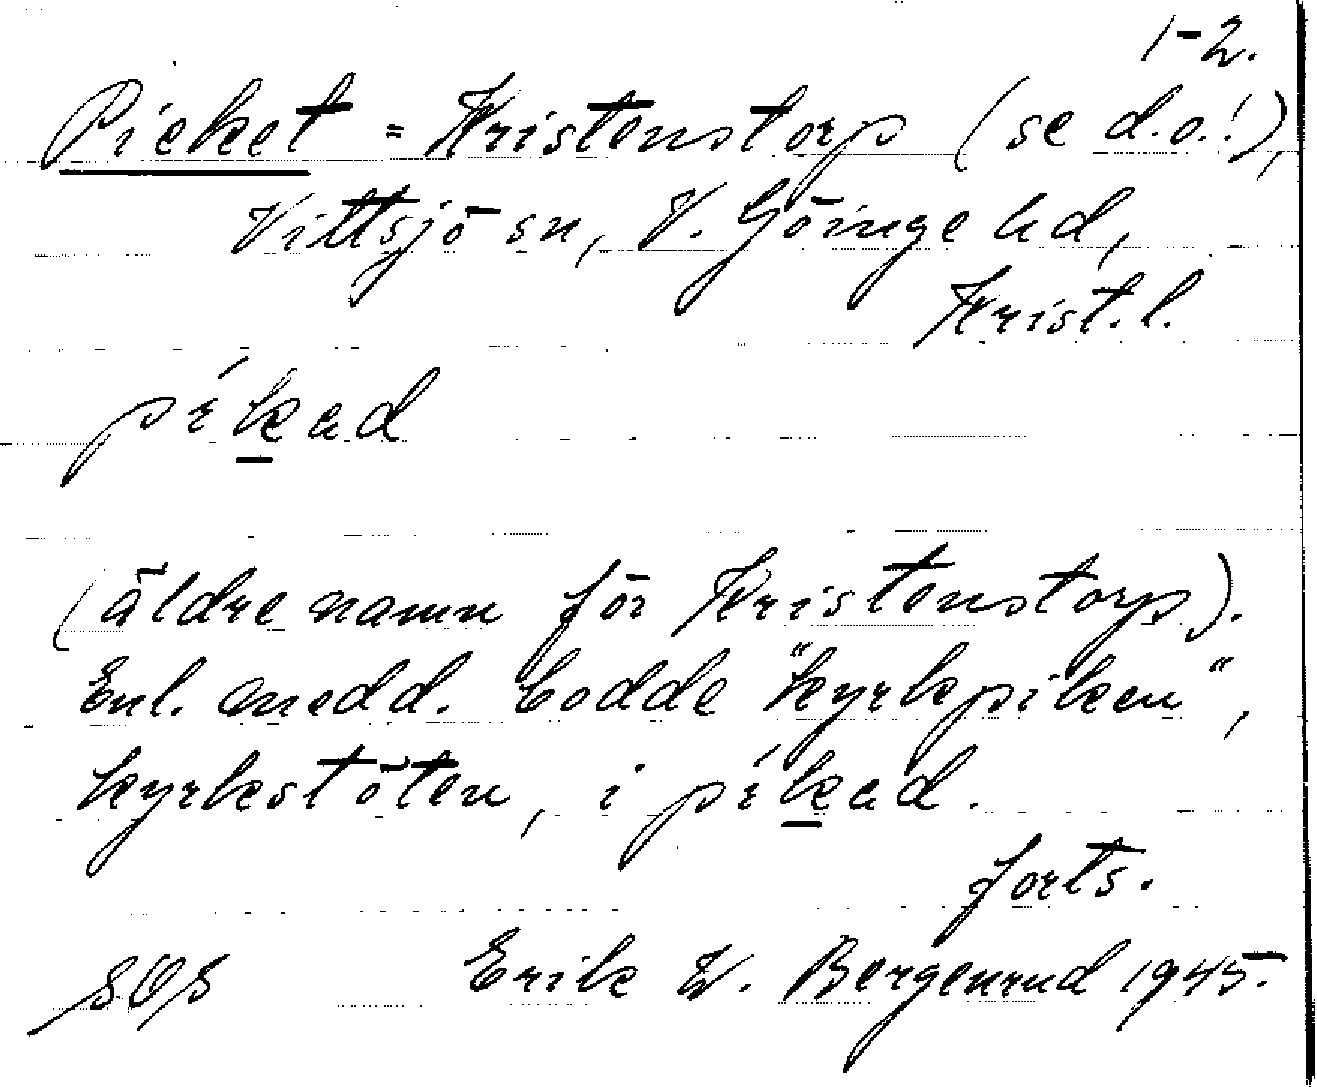 1-2.
Pieket = Kristenstorp (se d.o.!),
Vittsjö sn, V. Göinge hd,
Krist.l.
píkad
(äldre namn för Kristenstorp).
Enl. medd. bodde "kyrkpiken",
kyrkstöten, i píkad.
forts.
SOS Erik W. Bergenrud 1945.